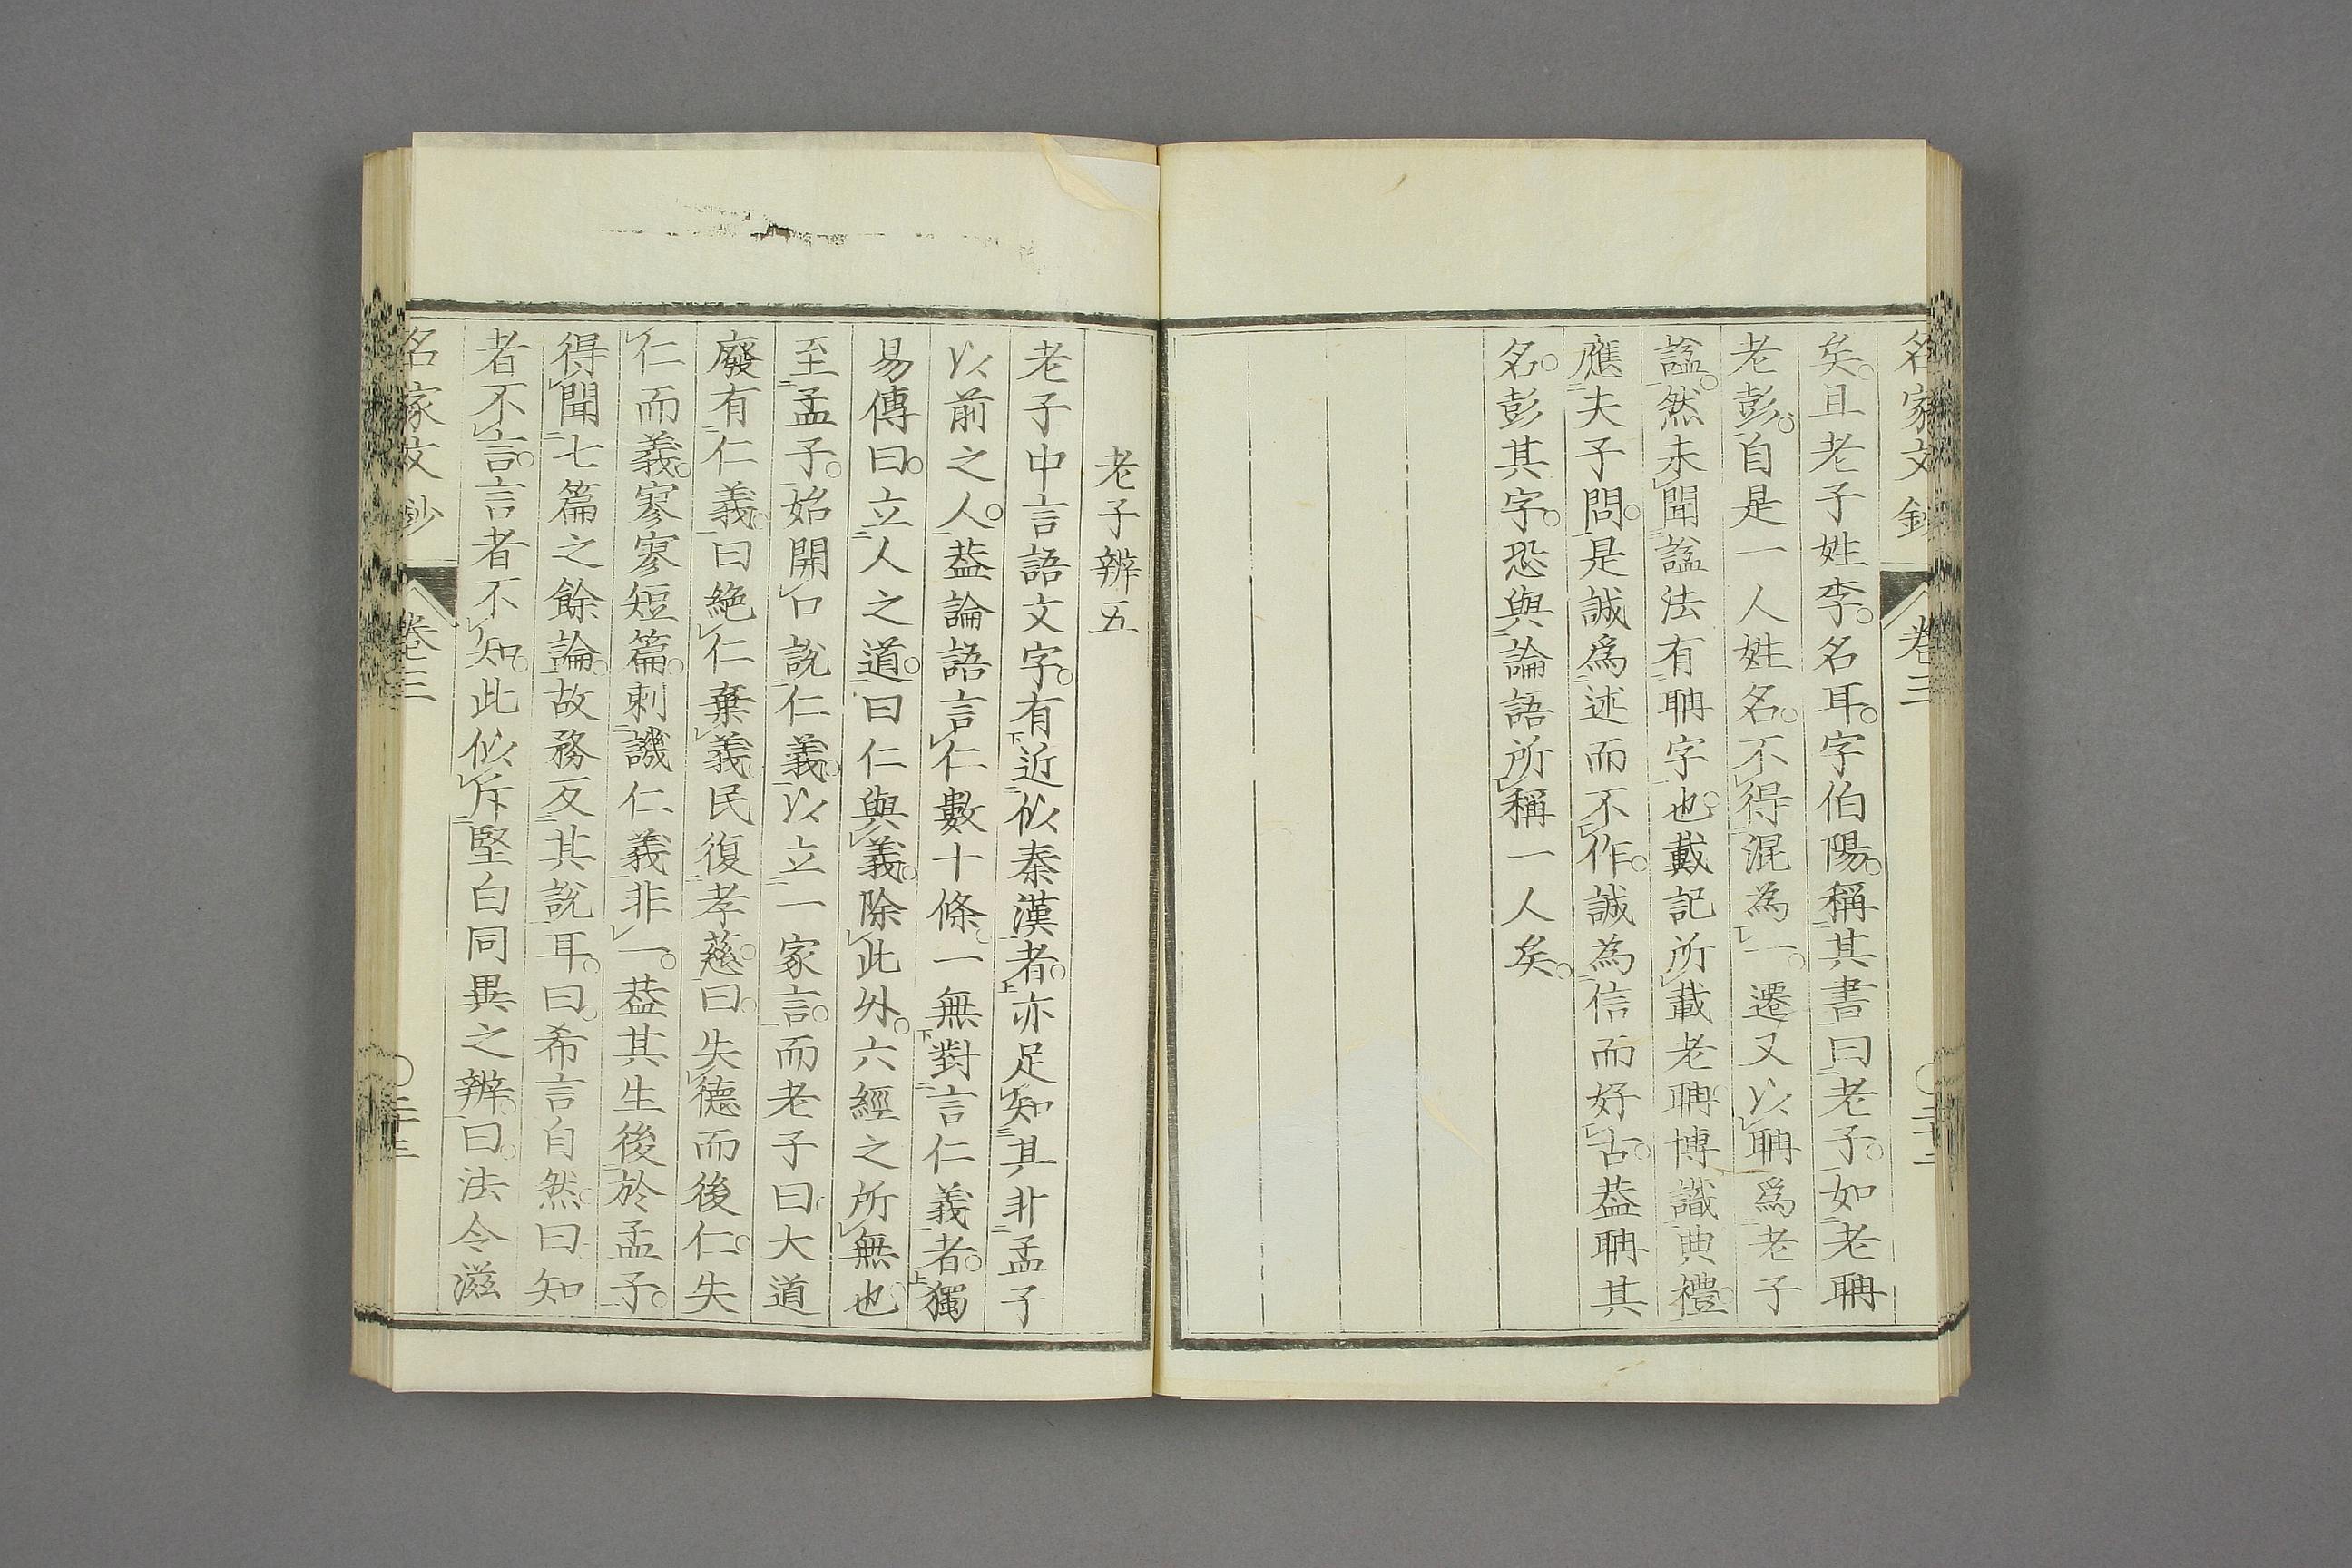 名家文鈔 卷三 〇二十二
矣。且老子姓李。名耳。字伯陽。稱其書曰老子。如老聃
老彭。自是一人姓名。不得混為一。遷又以聃爲老子
諡。然未聞諡法有聃字也。戴記所載老聃博識典禮。
應夫子問。是誠爲述而不作。誠為信而好古。葢聃其
名。彭其字。恐與論語所稱一人矣。
老子辨五
老子中言語文字。有近似秦漢者。亦足知其非孟子
以前之人。葢論語言仁數十條。一無對言仁義者。獨
易傳曰。立人之道。曰仁與義。除此外。六經之所無也
至孟子。始開口說仁義。以立一家言。而老子曰。大道
廢有仁義。曰絶仁棄義民復孝慈。曰。失德而後仁。失
仁而義。寥寥短篇。刺譏仁義非一。葢其生後於孟子。
得聞七篇之餘論。故務反其說耳。曰。希言自然。曰知
者不言。言者不知。此似斥堅白同異之辨。曰。法令滋
名家文鈔 卷三 〇二十三